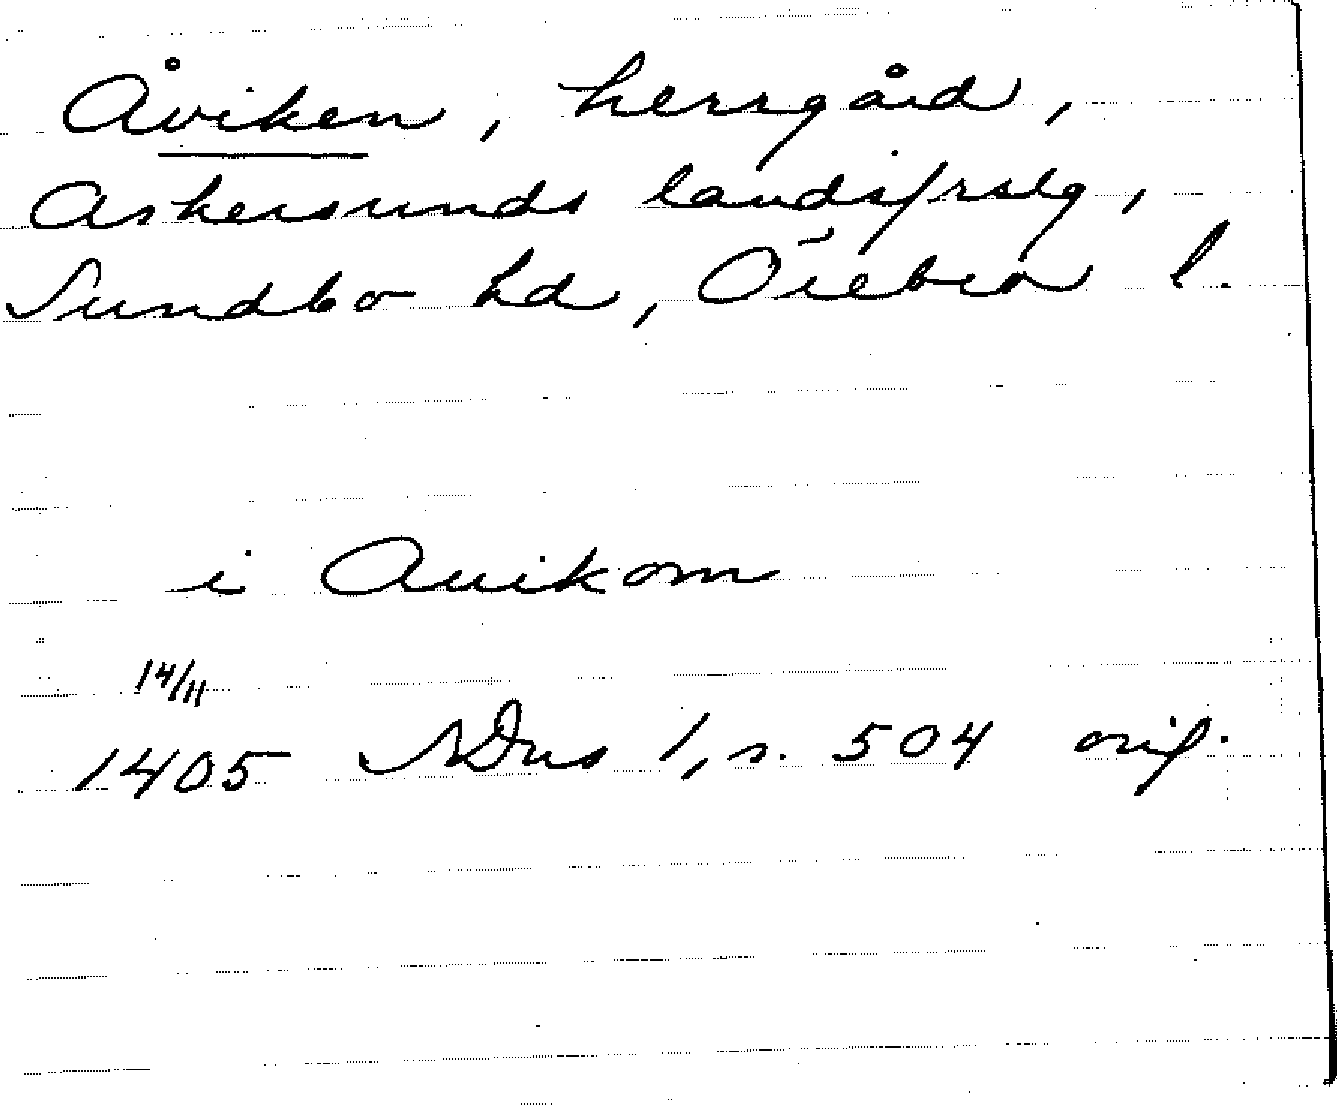 Åviken, herrgård,
Askersunds landsfrslg,
Sundbo hd, Örebro l.
i Auikom
14/11
1405 SDns 1, s. 504 orig.